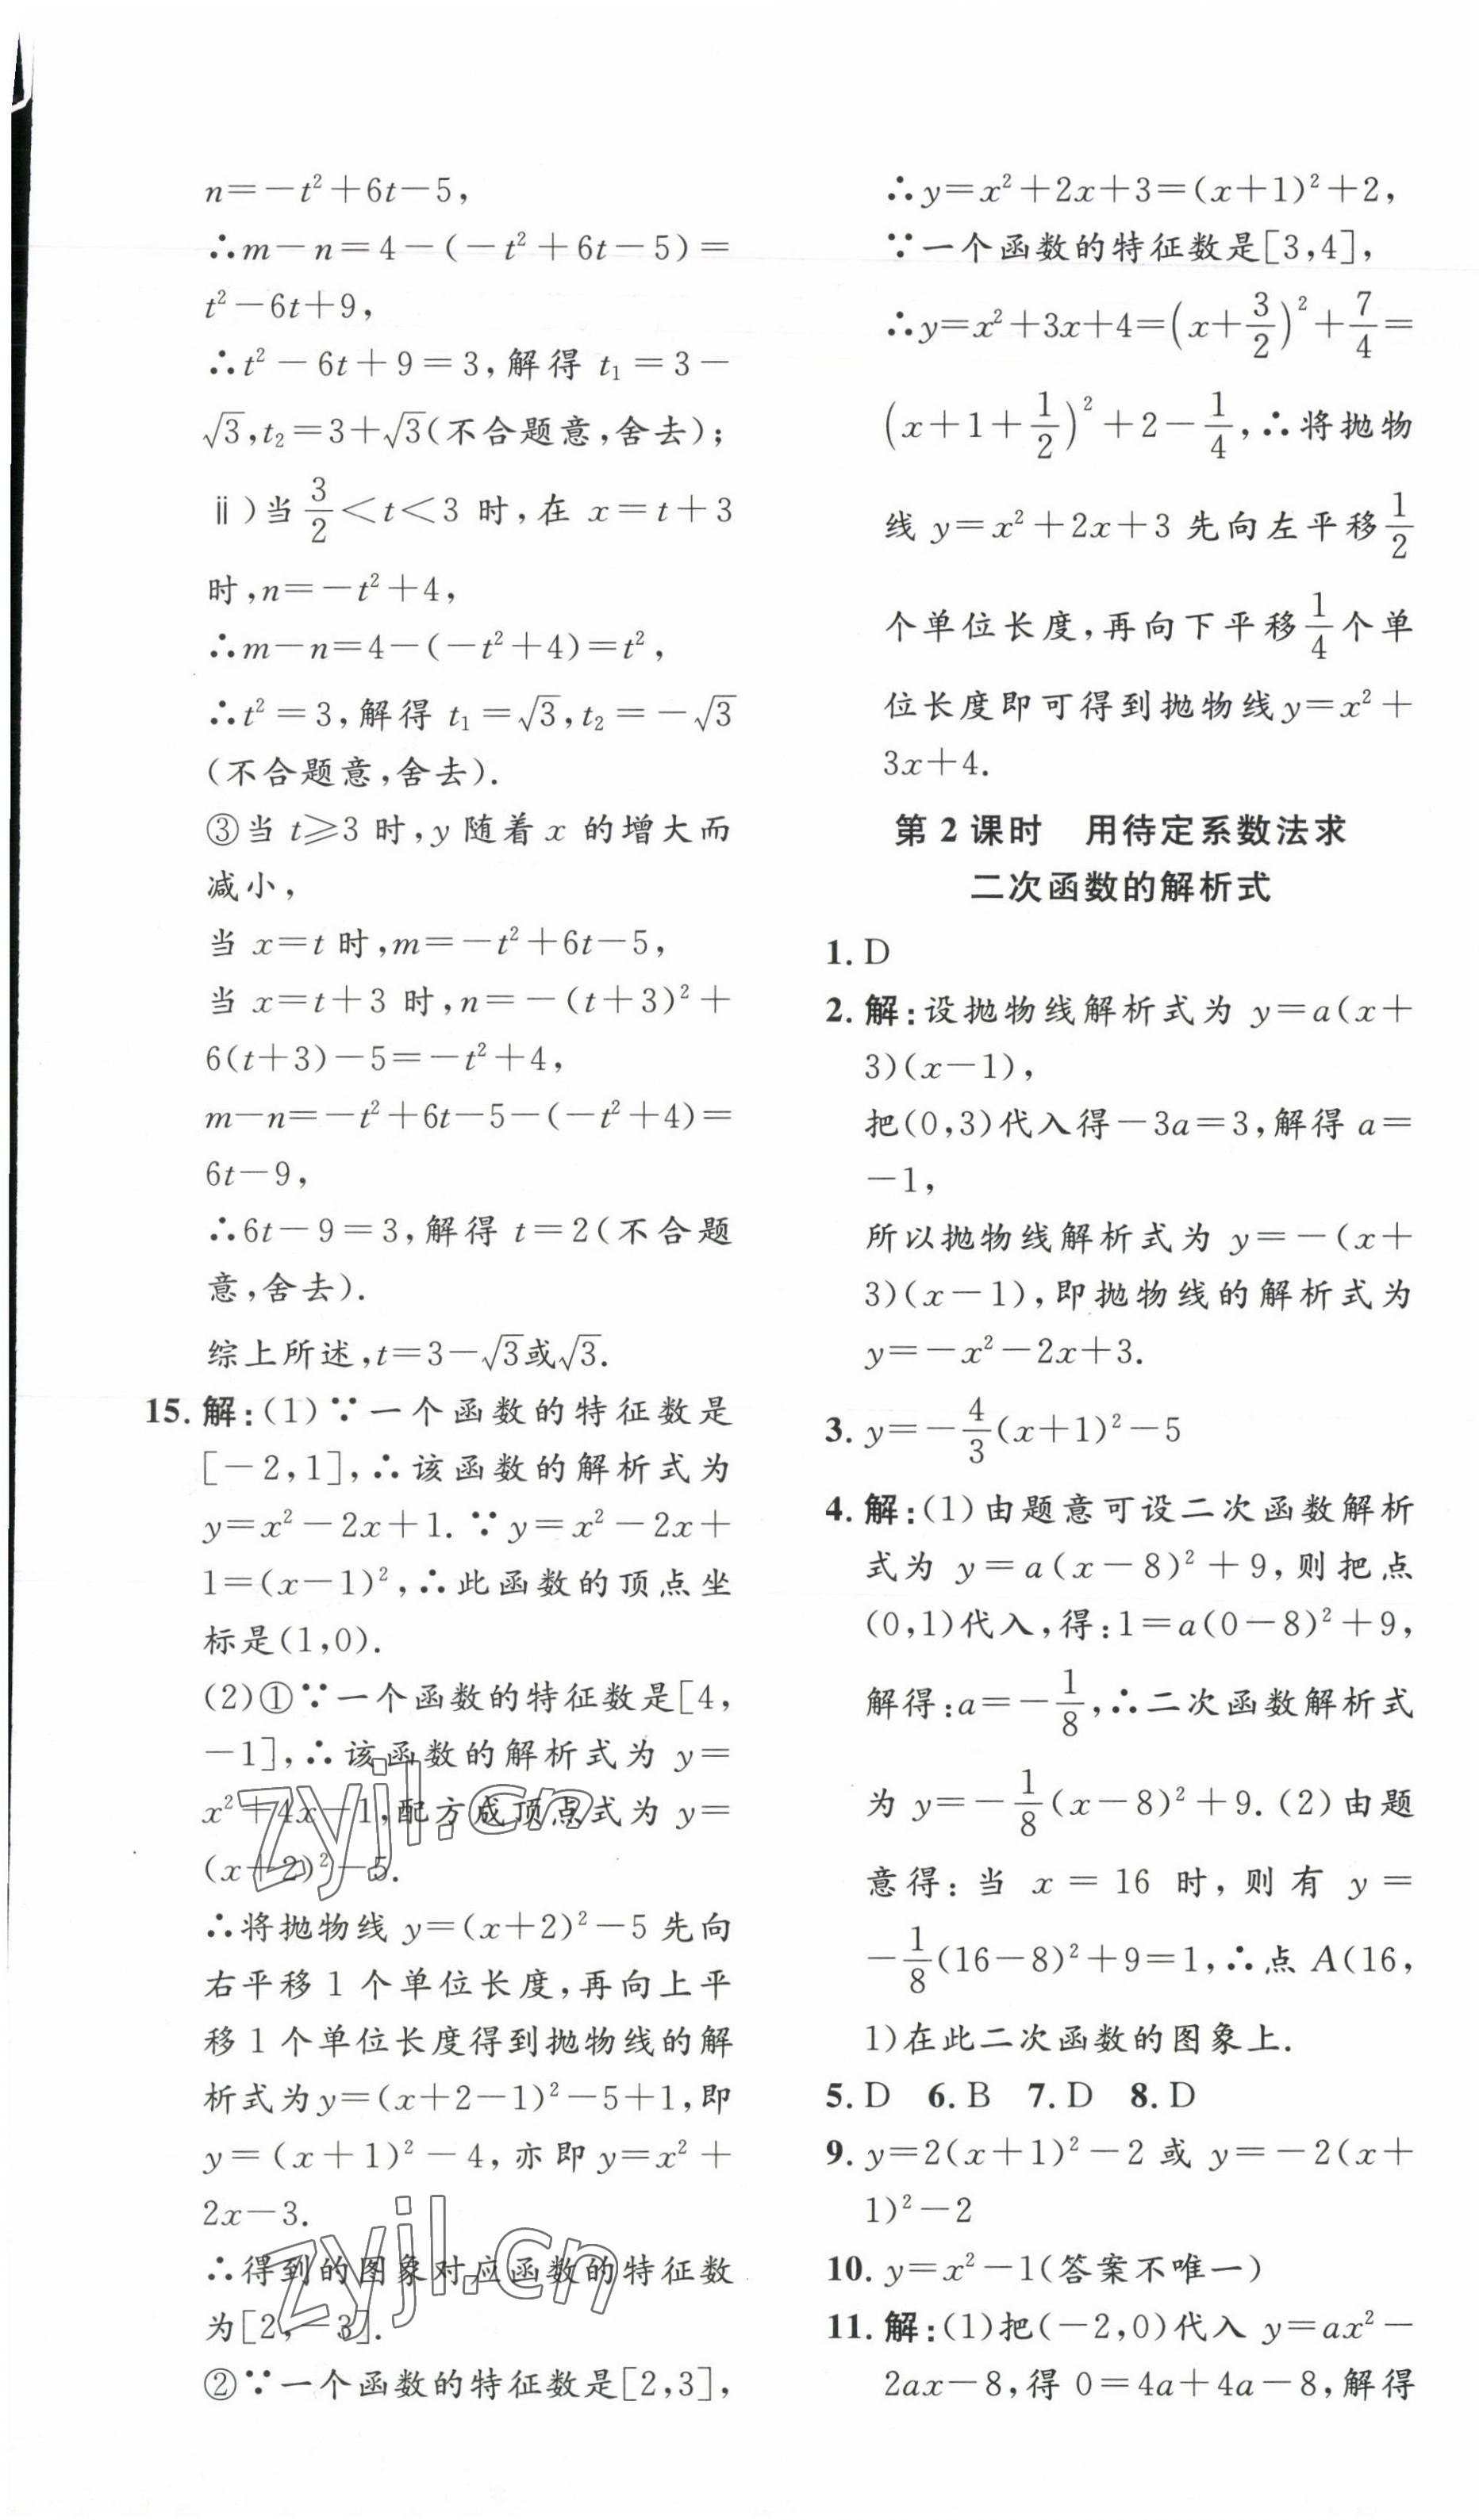 n=-t²+6t-5,
∴m-n=4-(-t²+6t-5)=
t²-6t+9,
∴t²-6t+9=3,解得 t₁=3-
√3,t₂=3+√3(不合题意,舍去);
ⅱ)当 3/2<t<3 时,在 x=t+3
时,n=-t²+4,
∴m-n=4-(-t²+4)=t²,
∴t²=3,解得 t₁=√3,t₂=-√3
(不合题意,舍去).
③当 t⩾3 时,y 随着 x 的增大而
减小,
当 x=t 时,m=-t²+6t-5,
当 x=t+3 时,n=-(t+3)²+
6(t+3)-5=-t²+4,
m-n=-t²+6t-5-(-t²+4)=
6t-9,
∴6t-9=3,解得 t=2(不合题
意,舍去).
综上所述,t=3-√3或√3.
15. 解:(1)∵一个函数的特征数是
[-2,1],∴该函数的解析式为
y=x²-2x+1.∵y=x²-2x+
1=(x-1)²,∴此函数的顶点坐
标是(1,0).
(2)①∵一个函数的特征数是[4,
-1],∴该函数的解析式为 y=
x²+4x-1,配方成顶点式为 y=
(x+2)²-5.
∴将抛物线 y=(x+2)²-5 先向
右平移 1 个单位长度,再向上平
移 1 个单位长度得到抛物线的解
析式为y=(x+2-1)²-5+1,即
y=(x+1)²-4,亦即 y=x²+
2x-3.
∴得到的图象对应函数的特征数
为[2,-3].
②∵一个函数的特征数是[2,3],
∴y=x²+2x+3=(x+1)²+2,
∵一个函数的特征数是[3,4],
∴y=x²+3x+4=(x+3/2)²+7/4=
(x+1+1/2)²+2-1/4,∴将抛物
线 y=x²+2x+3 先向左平移1/2
个单位长度,再向下平移1/4个单
位长度即可得到抛物线y=x²+
3x+4.
第 2 课时 用待定系数法求
二次函数的解析式
1. D
2. 解:设抛物线解析式为 y=a(x+
3)(x-1),
把(0,3)代入得-3a=3,解得 a=
-1,
所以抛物线解析式为 y=-(x+
3)(x-1),即抛物线的解析式为
y=-x²-2x+3.
3. y=-4/3(x+1)²-5
4. 解:(1)由题意可设二次函数解析
式为 y=a(x-8)²+9,则把点
(0,1)代入,得:1=a(0-8)²+9,
解得:a=-1/8,∴二次函数解析式
为 y=-1/8(x-8)²+9.(2)由题
意得:当 x=16 时,则有 y=
-1/8(16-8)²+9=1,∴点 A(16,
1)在此二次函数的图象上.
5. D 6. B 7. D 8. D
9. y=2(x+1)²-2 或 y=-2(x+
1)²-2
10. y=x²-1(答案不唯一)
11. 解:(1)把(-2,0)代入 y=ax²-
2ax-8,得 0=4a+4a-8,解得
zyjl.cn
zyjl.cn